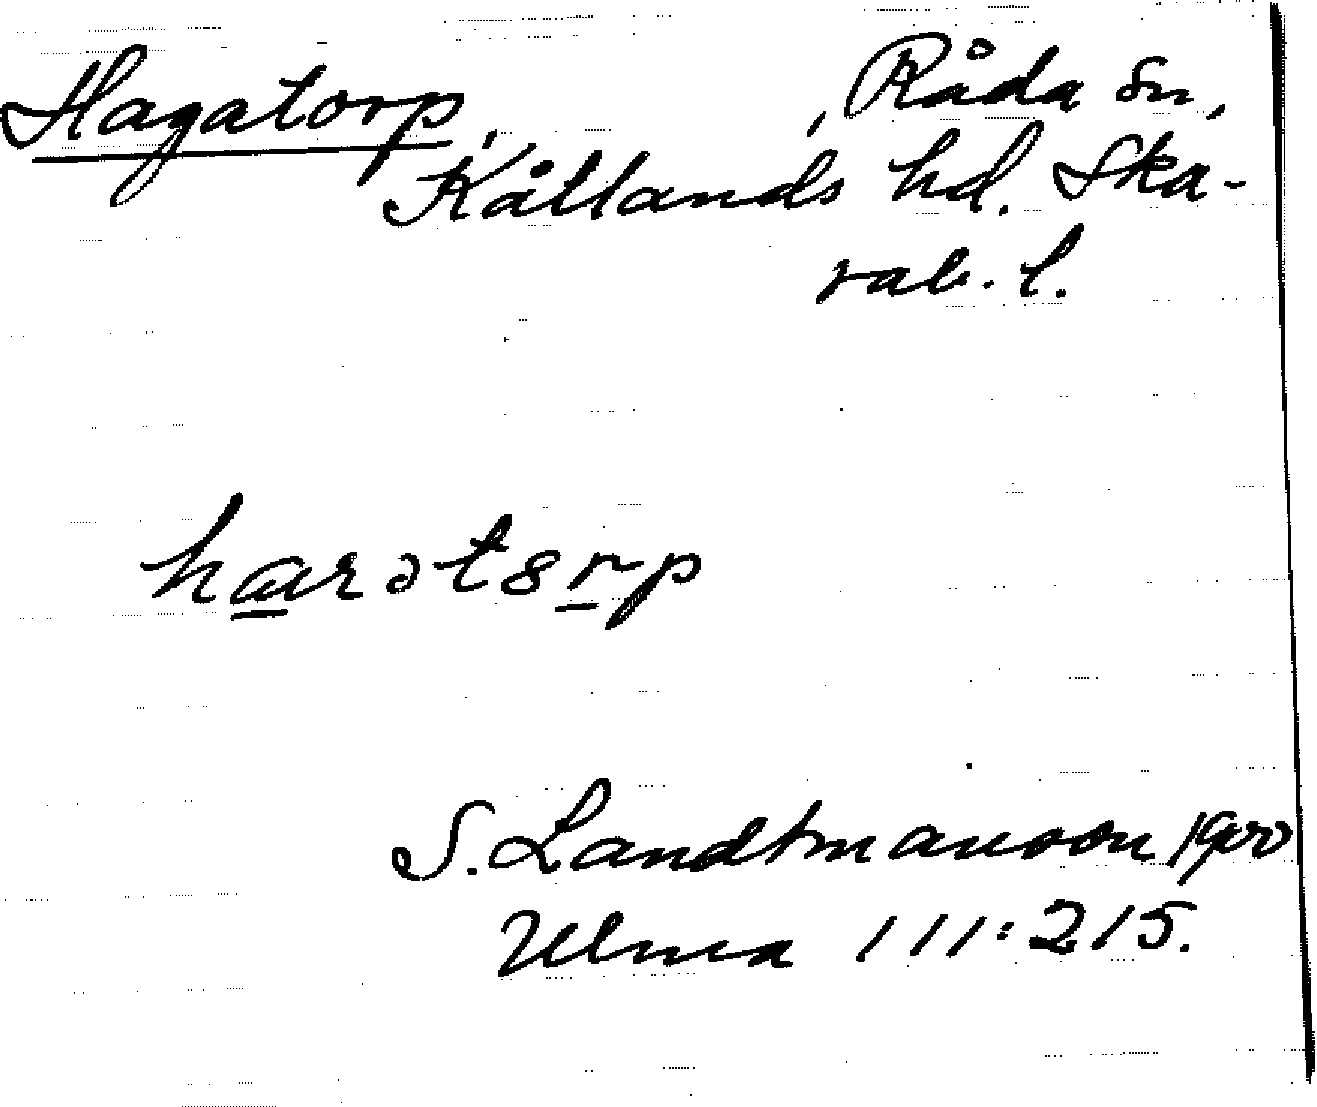 Hagatorp, Råda sn,
Kållands hd. Ska-
rab. l.
harətorp
S. Landtmanson 1900
Ulma 111:215.